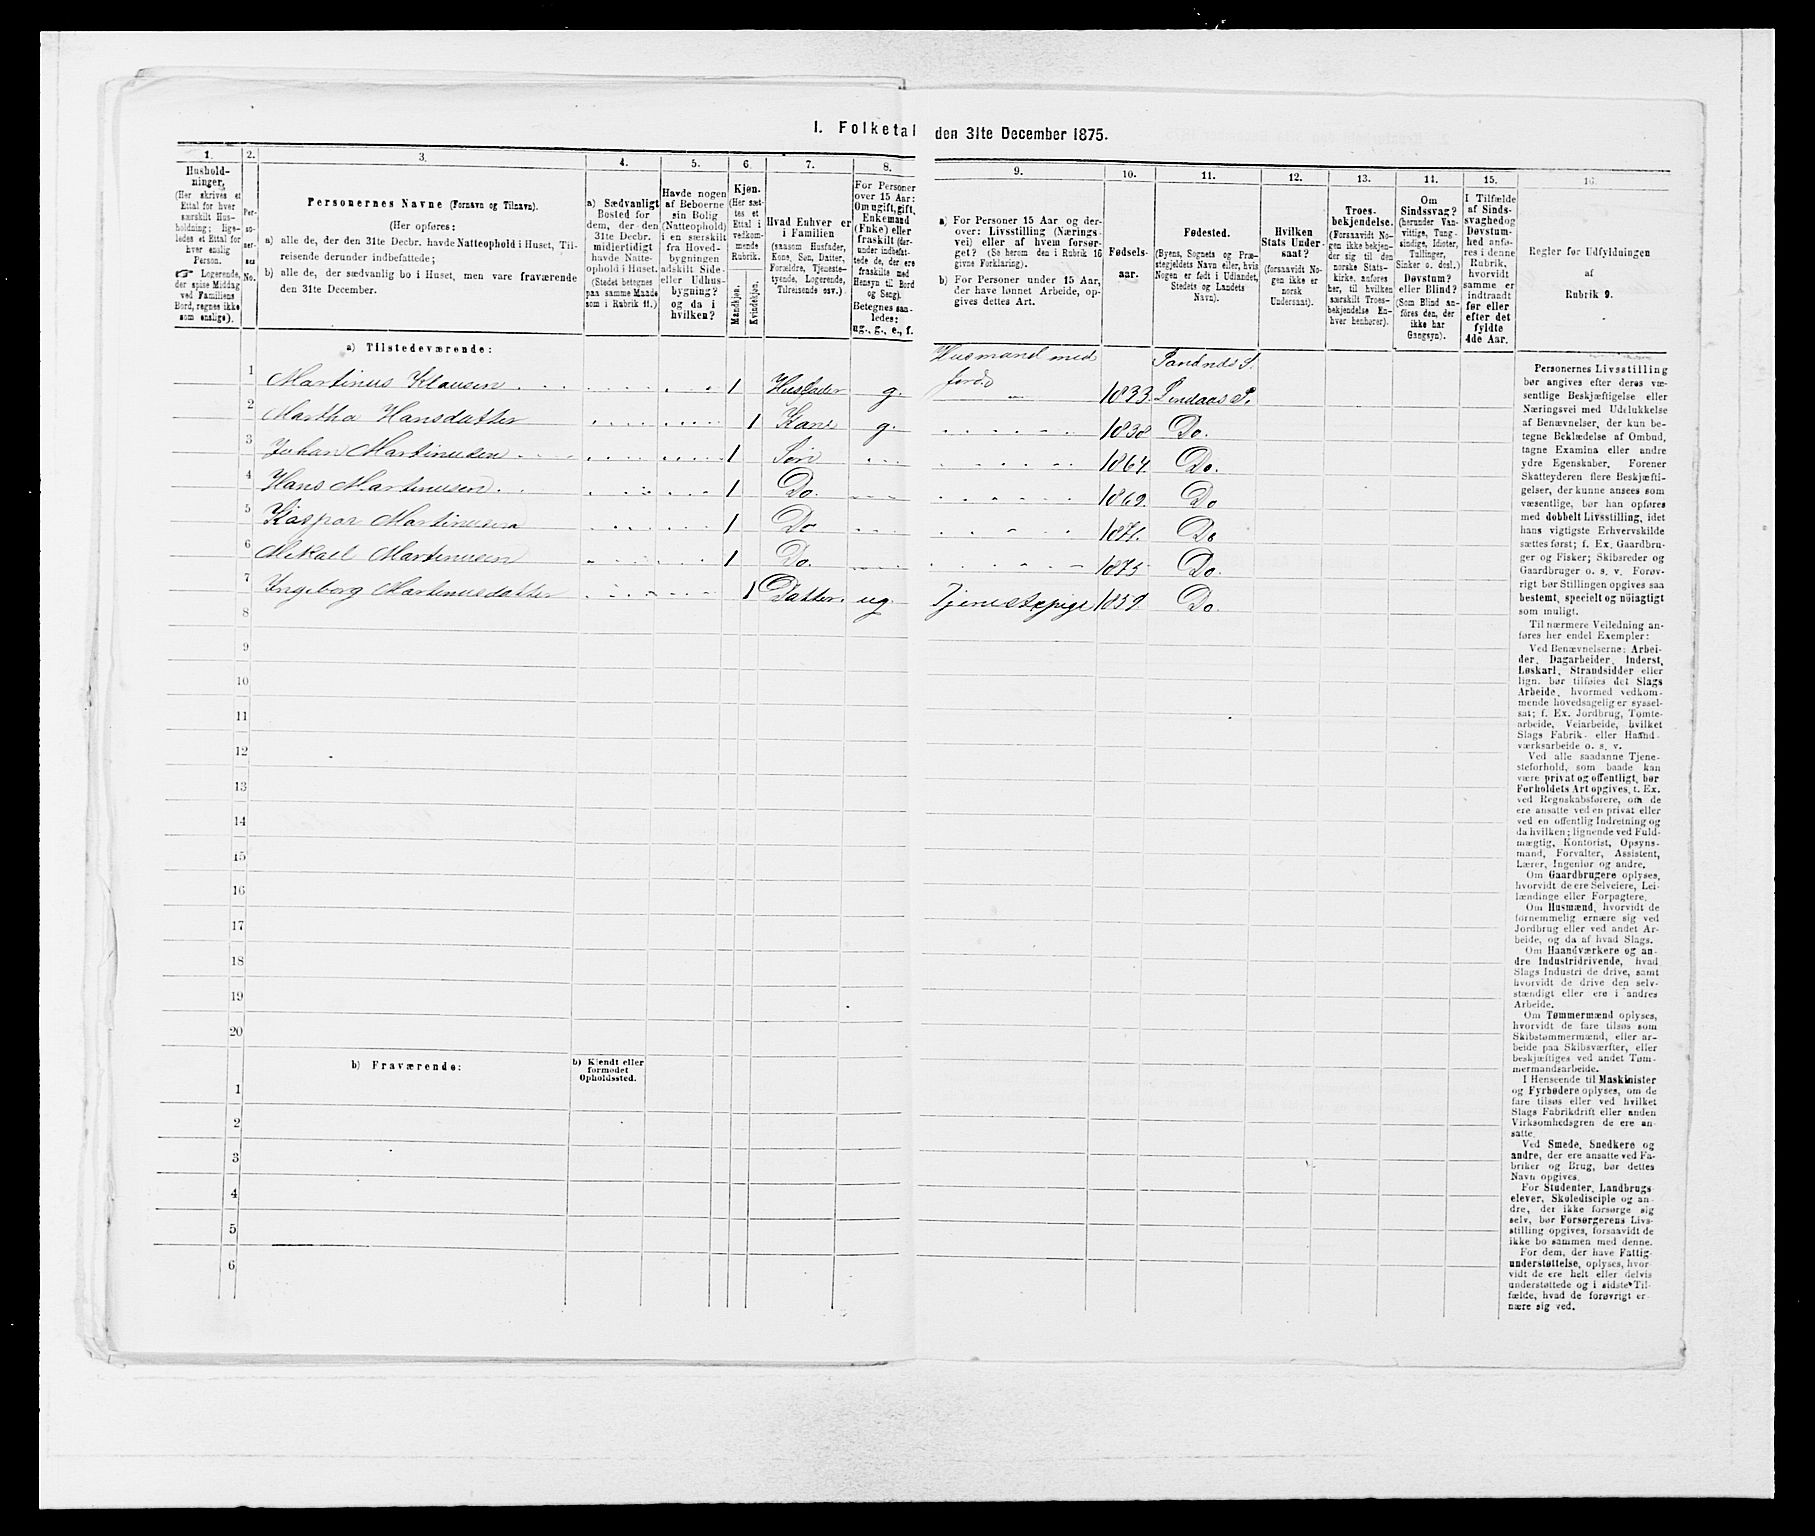 I. Folketal den 31te December 1875.
1. 2. 3. 4. 5. 6. 7. 8. 9. 10. 11. 12. 13. 14. 15. 16.
Husholdninger,
(Her skrives et
Ettal for hver
særskilt Husholdning;
ligeledes et Ettal for
hver enslig
Person.
☞ Logerende,
der spise Middag
ved Familiens
Bord, regnes ikke
som enslige).
Personernes No.
Personernes Navne (Fornavn og Tilnavn).
(Her opføres:
a) alle de, der den 31te Decbr. havde Natteophold i Huset, Tilreisende
derunder indbefattede;
b) alle de, der sædvanlig bo i Huset, men vare fraværende
den 31te December.
a) Sædvanligt
Bosted for
dem, der den
31te Decbr.
midlertidigt
havde Natteophold
i Huset.
(Stedet betegnes
paa samme Maade
som i Rubrik 11.)
Havde nogen
af Beboerne
sin Bolig
(Natteophold)
i en særskilt
fra Hovedbygningen
adskilt Side-
eller Udhusbygning?
og da i
hvilken?
Kjøn.
(Her sættes
et
Ettal i
vedkommende
Rubrik.
Mandkjøn.
Kvindekjøn.
Hvad Enhver er
i Familien
(saasom Husfader,
Kone, Søn, Datter,
Forældre, Tjenestetyende,
Logerende,
Tilreisende osv.)
For Personer
over 15 Aar:
Om ugift, gift,
Enkemand
(Enke) eller
fraskilt (derunder
indbefattede
de, der ere
fraskilte med
Hensyn til Bord
og Seng).
Betegnes saaledes:
ug., g., e., f.
a) For Personer 15 Aar og derover:
Livsstilling (Næringsvei)
eller af hvem forsørget?
(Se herom den i Rubrik 16
givne Forklaring).
b) For Personer under 15 Aar,
der have lønnet Arbeide, opgives
dettes Art.
Fødselsaar.
Fødested.
(Byens, Sognets og Præstegjeldets
Navn eller, hvis
Nogen er født i Udlandet,
Stedets og Landets
Navn).
Hvilken
Stats Undersaat?
(forsaavidt Nogen
ikke er
norsk
Undersaat).
Troesbekjendelse.
(Forsaavidt Nogen
ikke bekjender
sig til den
norske Statskirke,
anføres
her, til hvilken
særskilt Troesbekjendelse
Enhver
henhører).
Om
Sindssvag?
(herunder Vanvittige,
Tungsindige,
Idioter,
Tullinger,
Sinker o. desl.)
Døvstum?
eller Blind?
(Som Blind anføres
den, der
ikke har
Gangsyn).
I Tilfælde
af Sindssvaghed
og
Døvstumhed
anføres
i denne
Rubrik,
hvorvidt
samme er
indtraadt
før eller
efter det
fyldte
4de Aar.
Regler før Udfyldningen
af
Rubrik 9.
a) Tilstedeværende:
1 Martinus Klausen 1 Husfader g. Husmand med Jord 1833. Sandnes S. Lindaas P.
2 Martha Hansdatter 1 Kone g. 1838 Do.
3 Johan Martinusen 1 Søn 1864. Do.
4 Hans Martinusen 1 Do. 1869. Do
5 Kaspar Martinusen 1 Do 1871. Do
6 Mikael Martinusen 1 Do. 1875 Do.
7 Ingeborg Martinusdatter 1 Datter. ug. Tjenestepige 1859 Do.
8
9
10
11
12
13
14
15
16
17
18
19
20
b) Fraværende:
b) Kjendt eller
formodet
Opholdssted.
1
2
3
4
5
6
Personernes Livsstilling
bør angives efter deres væsentlige
Beskjæftigelse eller
Næringsvei med Udelukkelse
af Benævnelser, der kun betegne
Beklædelse af Ombud,
tagne Examina eller andre
ydre Egenskaber. Forener
Skatteyderen flere Beskjæftigelser,
der kunne ansees som
væsentlige, bør han opføres
med dobbelt Livsstilling, idet
hans vigtigste Erhvervskilde
sættes først; f. Ex. Gaardbruger
og Fisker; Skibsreder og
Gaardbruger o. s. v. Forøvrigt
bør Stillingen opgives saa
bestemt, specielt og nøiagtigt
som muligt.
Til nærmere Veiledning anføres
her endel Exempler:
Ved Benævnelserne: Arbeider,
Dagarbeider, Inderst,
Løskarl, Strandsidder eller
lign. bør tilføies det Slags
Arbeide, hvormed vedkommende
hovedsagelig er sysselsat;
f. Ex. Jordbrug, Tomtearbeide,
Veiarbeide, hvilket
Slags Fabrik- eller Haandværksarbeide
o. s. v.
Ved alle saadanne Tjenesteforhold,
som baade kan
være privat og offentligt, bør
Forholdets Art opgives, f. Ex.
ved Regnskabsførere, om de
ere ansatte ved en privat eller
ved en offentlig Indretning og
da hvilken; lignende ved Fuldmægtig,
Kontorist, Opsynsmand,
Forvalter, Assistent,
Lærer, Ingeniør og andre.
Om Gaardbrugere oplyses,
hvorvidt de ere Selveiere, Leilændinge
eller Forpagtere.
Om Husmænd, hvorvidt de
fornemmelig ernære sig ved
Jordbrug eller ved andet Arbeide,
og da af hvad Slags.
Om Haandværkere og andre
Industridrivende, hvad
Slags Industri de drive, samt
hvorvidt de drive den selvstændigt
eller ere i andres
Arbeide.
Om Tømmermænd oplyses,
hvorvidt de fare tilsøs som
Skibstømmermænd, eller arbeide
paa Skibsværfter, eller
beskjæftiges ved andet Tømmermandsarbeide.
I Henseende til Maskinister
og Fyrbødere oplyses, om de
fare tilsøs eller ved hvilket
Slags Fabrikdrift eller anden
Virksomhedsgren de ere ansatte.
Ved Smede, Snedkere og
andre, der ere ansatte ved Fabriker
og Brug, bør dettes
Navn opgives.
For Studenter, Landbrugselever,
Skoledisciple og andre,
der ikke forsørge sig
selv, bør Forsørgerens Livsstilling
opgives, forsaavidt de
ikke bo sammen med denne.
For dem, der have Fattigunderstøttelse,
oplyses, hvorvidt
de ere helt eller delvis
understøttede og i sidste Tilfælde,
hvad de forøvrigt ernære
sig ved.